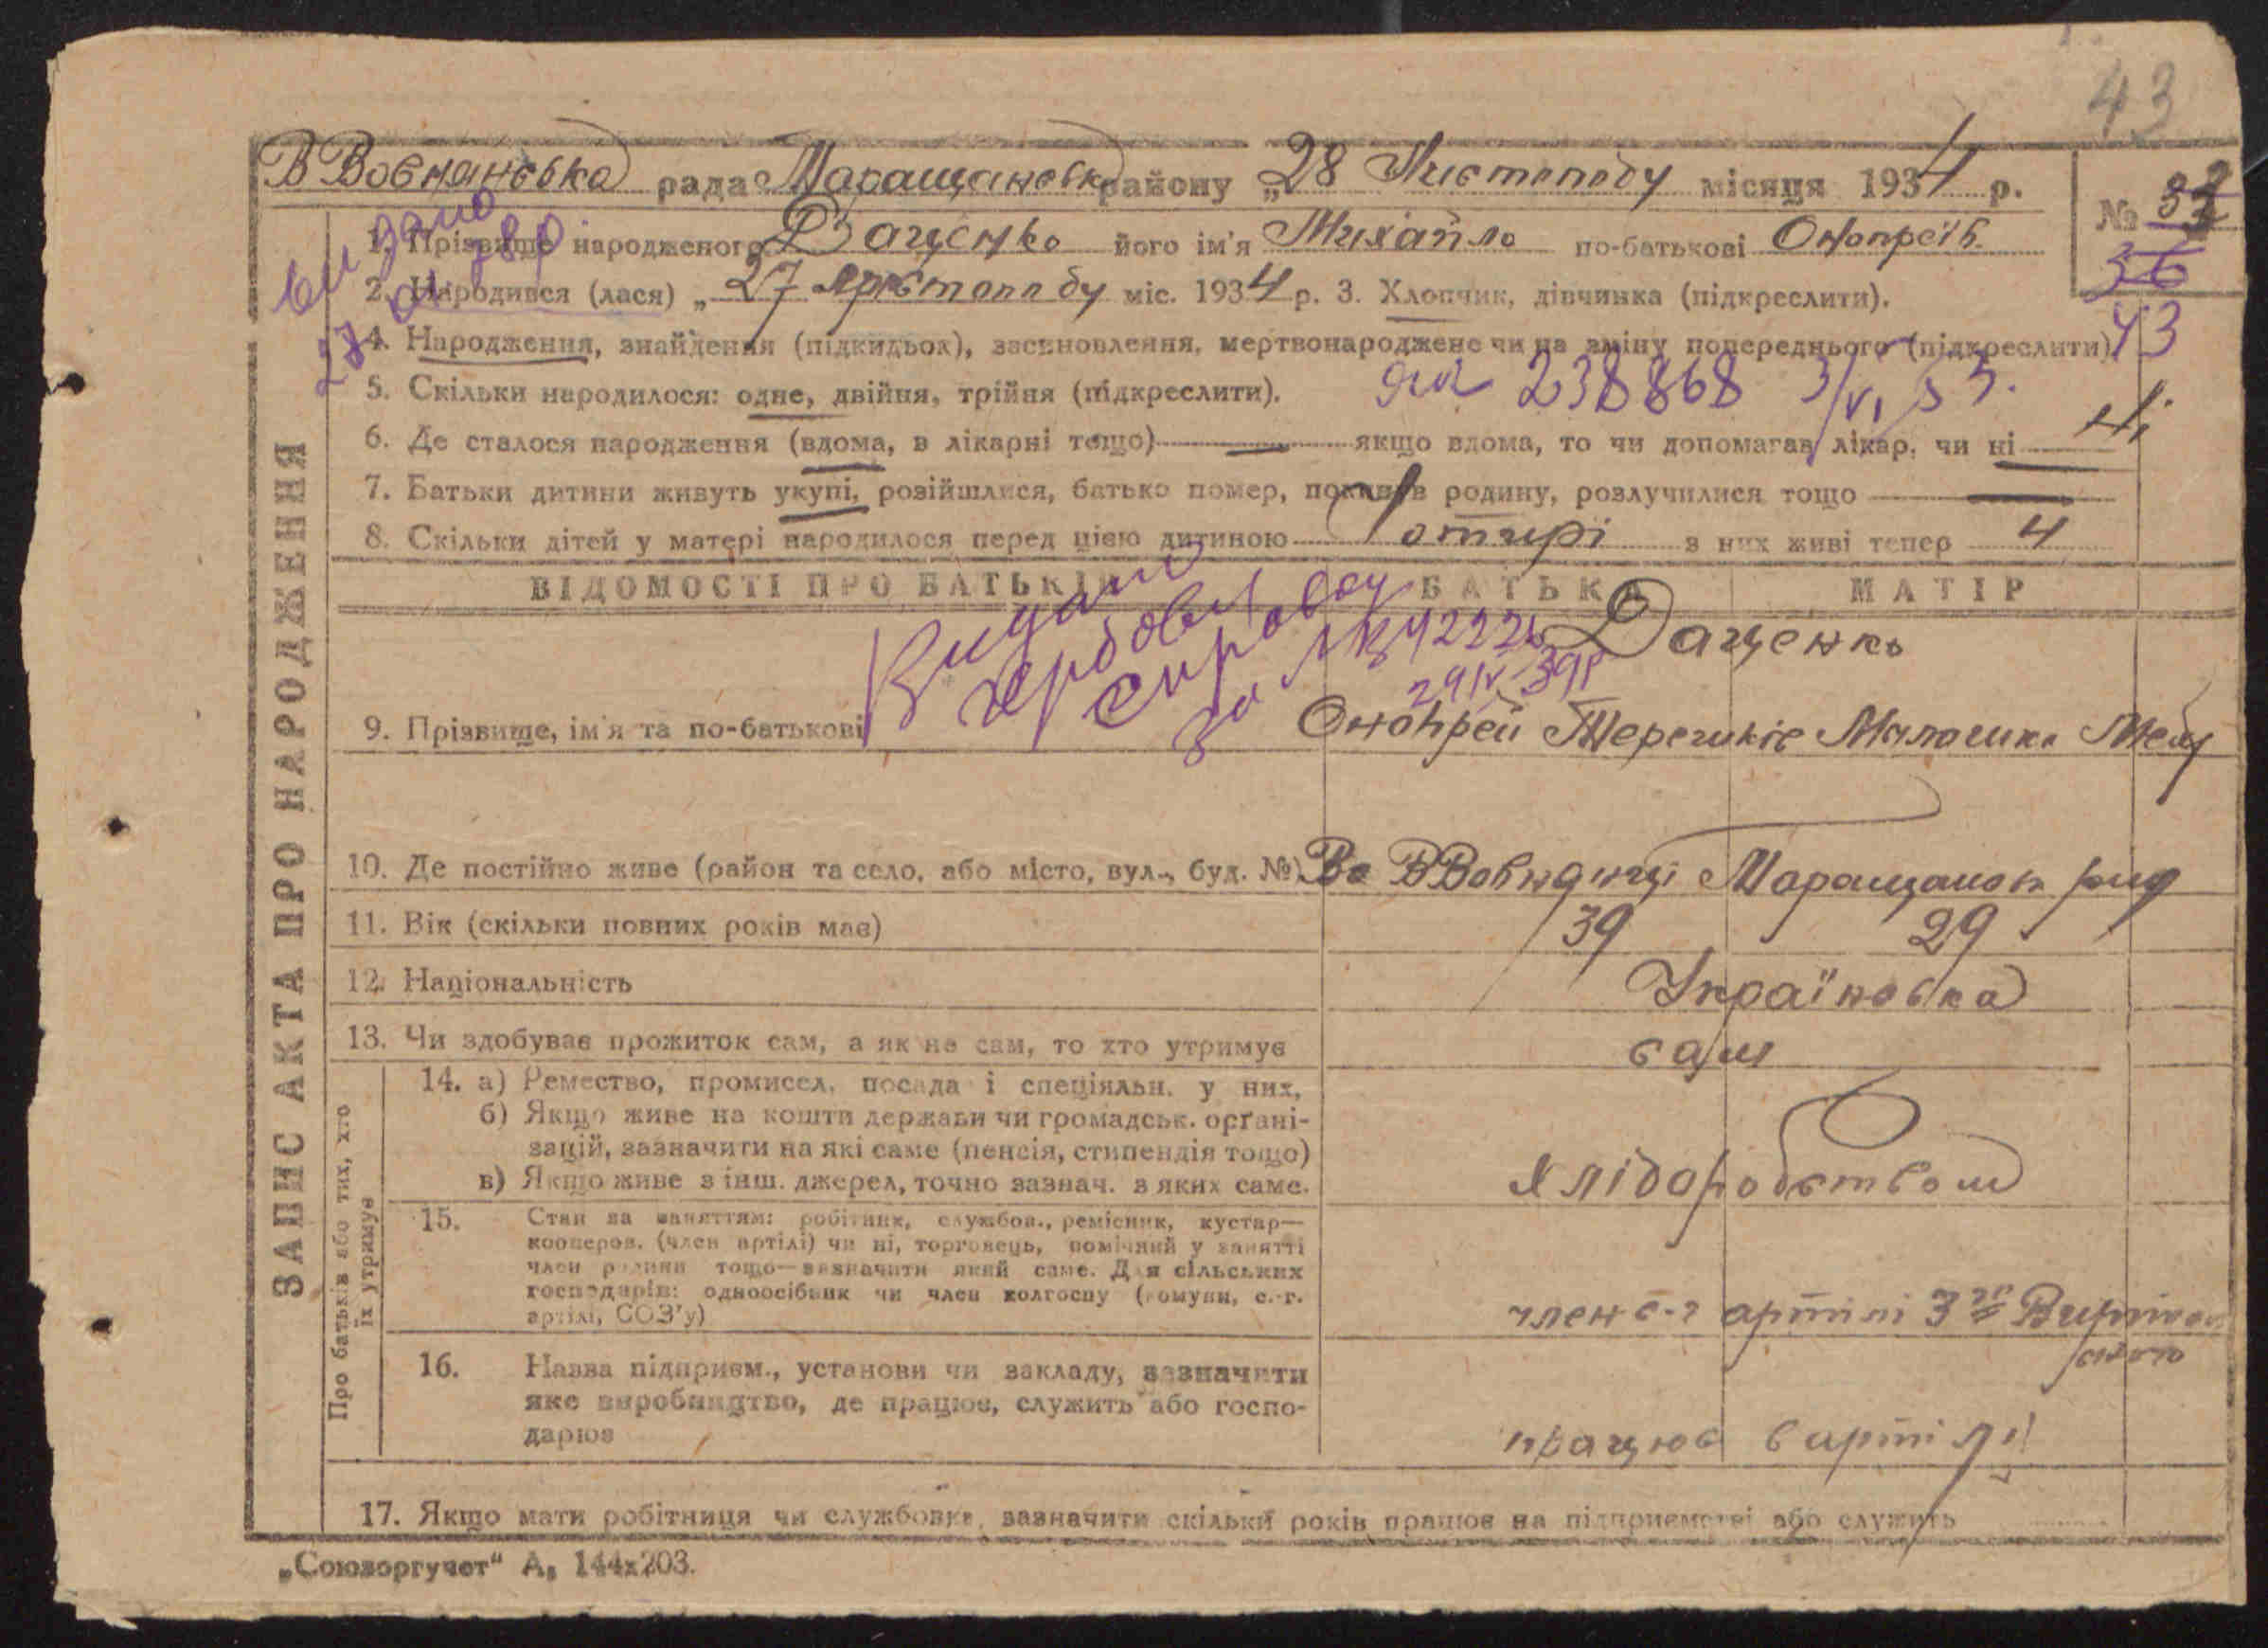 43
В Вовнянська рада Таращанськ району „28 Листопаду місяця 1934 р.
№ 32
36
43
1. Прізвище народженого Даценко його ім'я Михайло по-батькові Онопреїв
2. Народився (лася) „27 Листопаду міс. 1934 р. 3. Хлопчик, дівчинка (підкреслити).
видано
4. Народження, знайдення (підкидьок), засиновлення, мертвонароджене чи на зміну попереднього (підкреслити)
5. Скільки народилося: одне, двійня, трійня (підкреслити).
238868 3/VI 53.
6. Де сталося народження (вдома, в лікарні тощо) — якщо вдома, то чи допомагав лікар, чи ні Ні
7. Батьки дитини живуть укупі, розійшлися, батько помер, покинув родину, розлучилися тощо —
8. Скільки дітей у матері народилося перед цією дитиною Чотирі з них живі тепер 4
ВІДОМОСТІ ПРО БАТЬКІВ БАТЬКА МАТІР
Видано
29/IV 39р
Даценко
9. Прізвище, ім'я та по-батькові Онопрей Терешків Малашка
10. Де постійно живе (район та село, або місто, вул., буд. №) Вс ВВовнянці Таращанськ
11. Вік (скільки повних років має) 39 29
12. Національність Українська
13. Чи здобуває прожиток сам, а як не сам, то хто утримує сам
ЗАПИС АКТА ПРО НАРОДЖЕННЯ
Про батьків або тих, хто їх утримує
14. а) Ремество, промисел, посада і спеціяльн. у них,
б) Якщо живе на кошти держави чи громадськ. орґані-
зацій, зазначити на які саме (пенсія, стипендія тощо)
в) Якщо живе з інш. джерел, точно зазнач. з яких саме.
хліборобством
15. Стан за заняттям: робітник, службов., ремісник, кустар—
кооперов. (член артілі) чи ні, торговець, помічний у занятті
член родини тощо—зазначити який саме. Для сільських
господарів: одноосібник чи член колгоспу (комуни, с.-г.
артілі, СОЗ'у)
член с-г артілі
16. Назва підприєм., установи чи закладу, зазначити
яке виробництво, де працює, служить або госпо-
дарює
працює в артілі
17. Якщо мати робітниця чи службовка, зазначити скільки років працює на підприємстві або служить
„Союзоргучет“ А₅ 144х203.